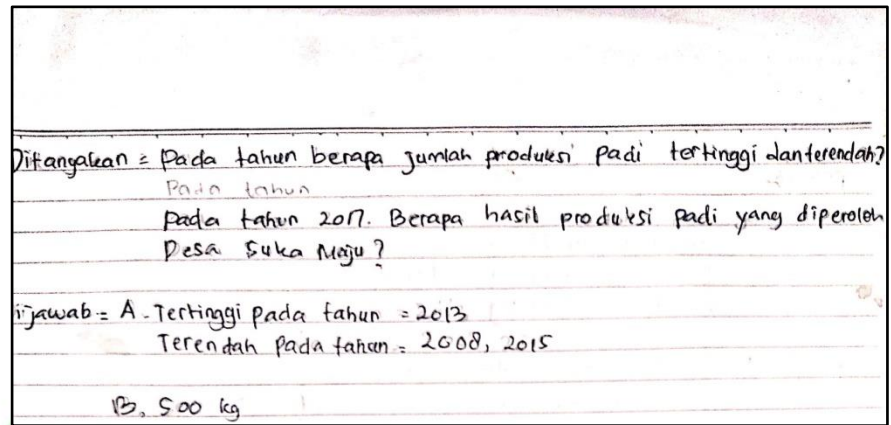 Ditangakan = Pada tahun berapa jumlah produksi padi tertinggi dan terendah?
Pada tahun
Pada tahun 2017. Berapa hasil produksi padi yang diperoleh
Desa Suka Maju?
ijawab = A. Tertinggi pada tahun = 2013
Terendah Pada tahun = 2008, 2015
B. 500 kg